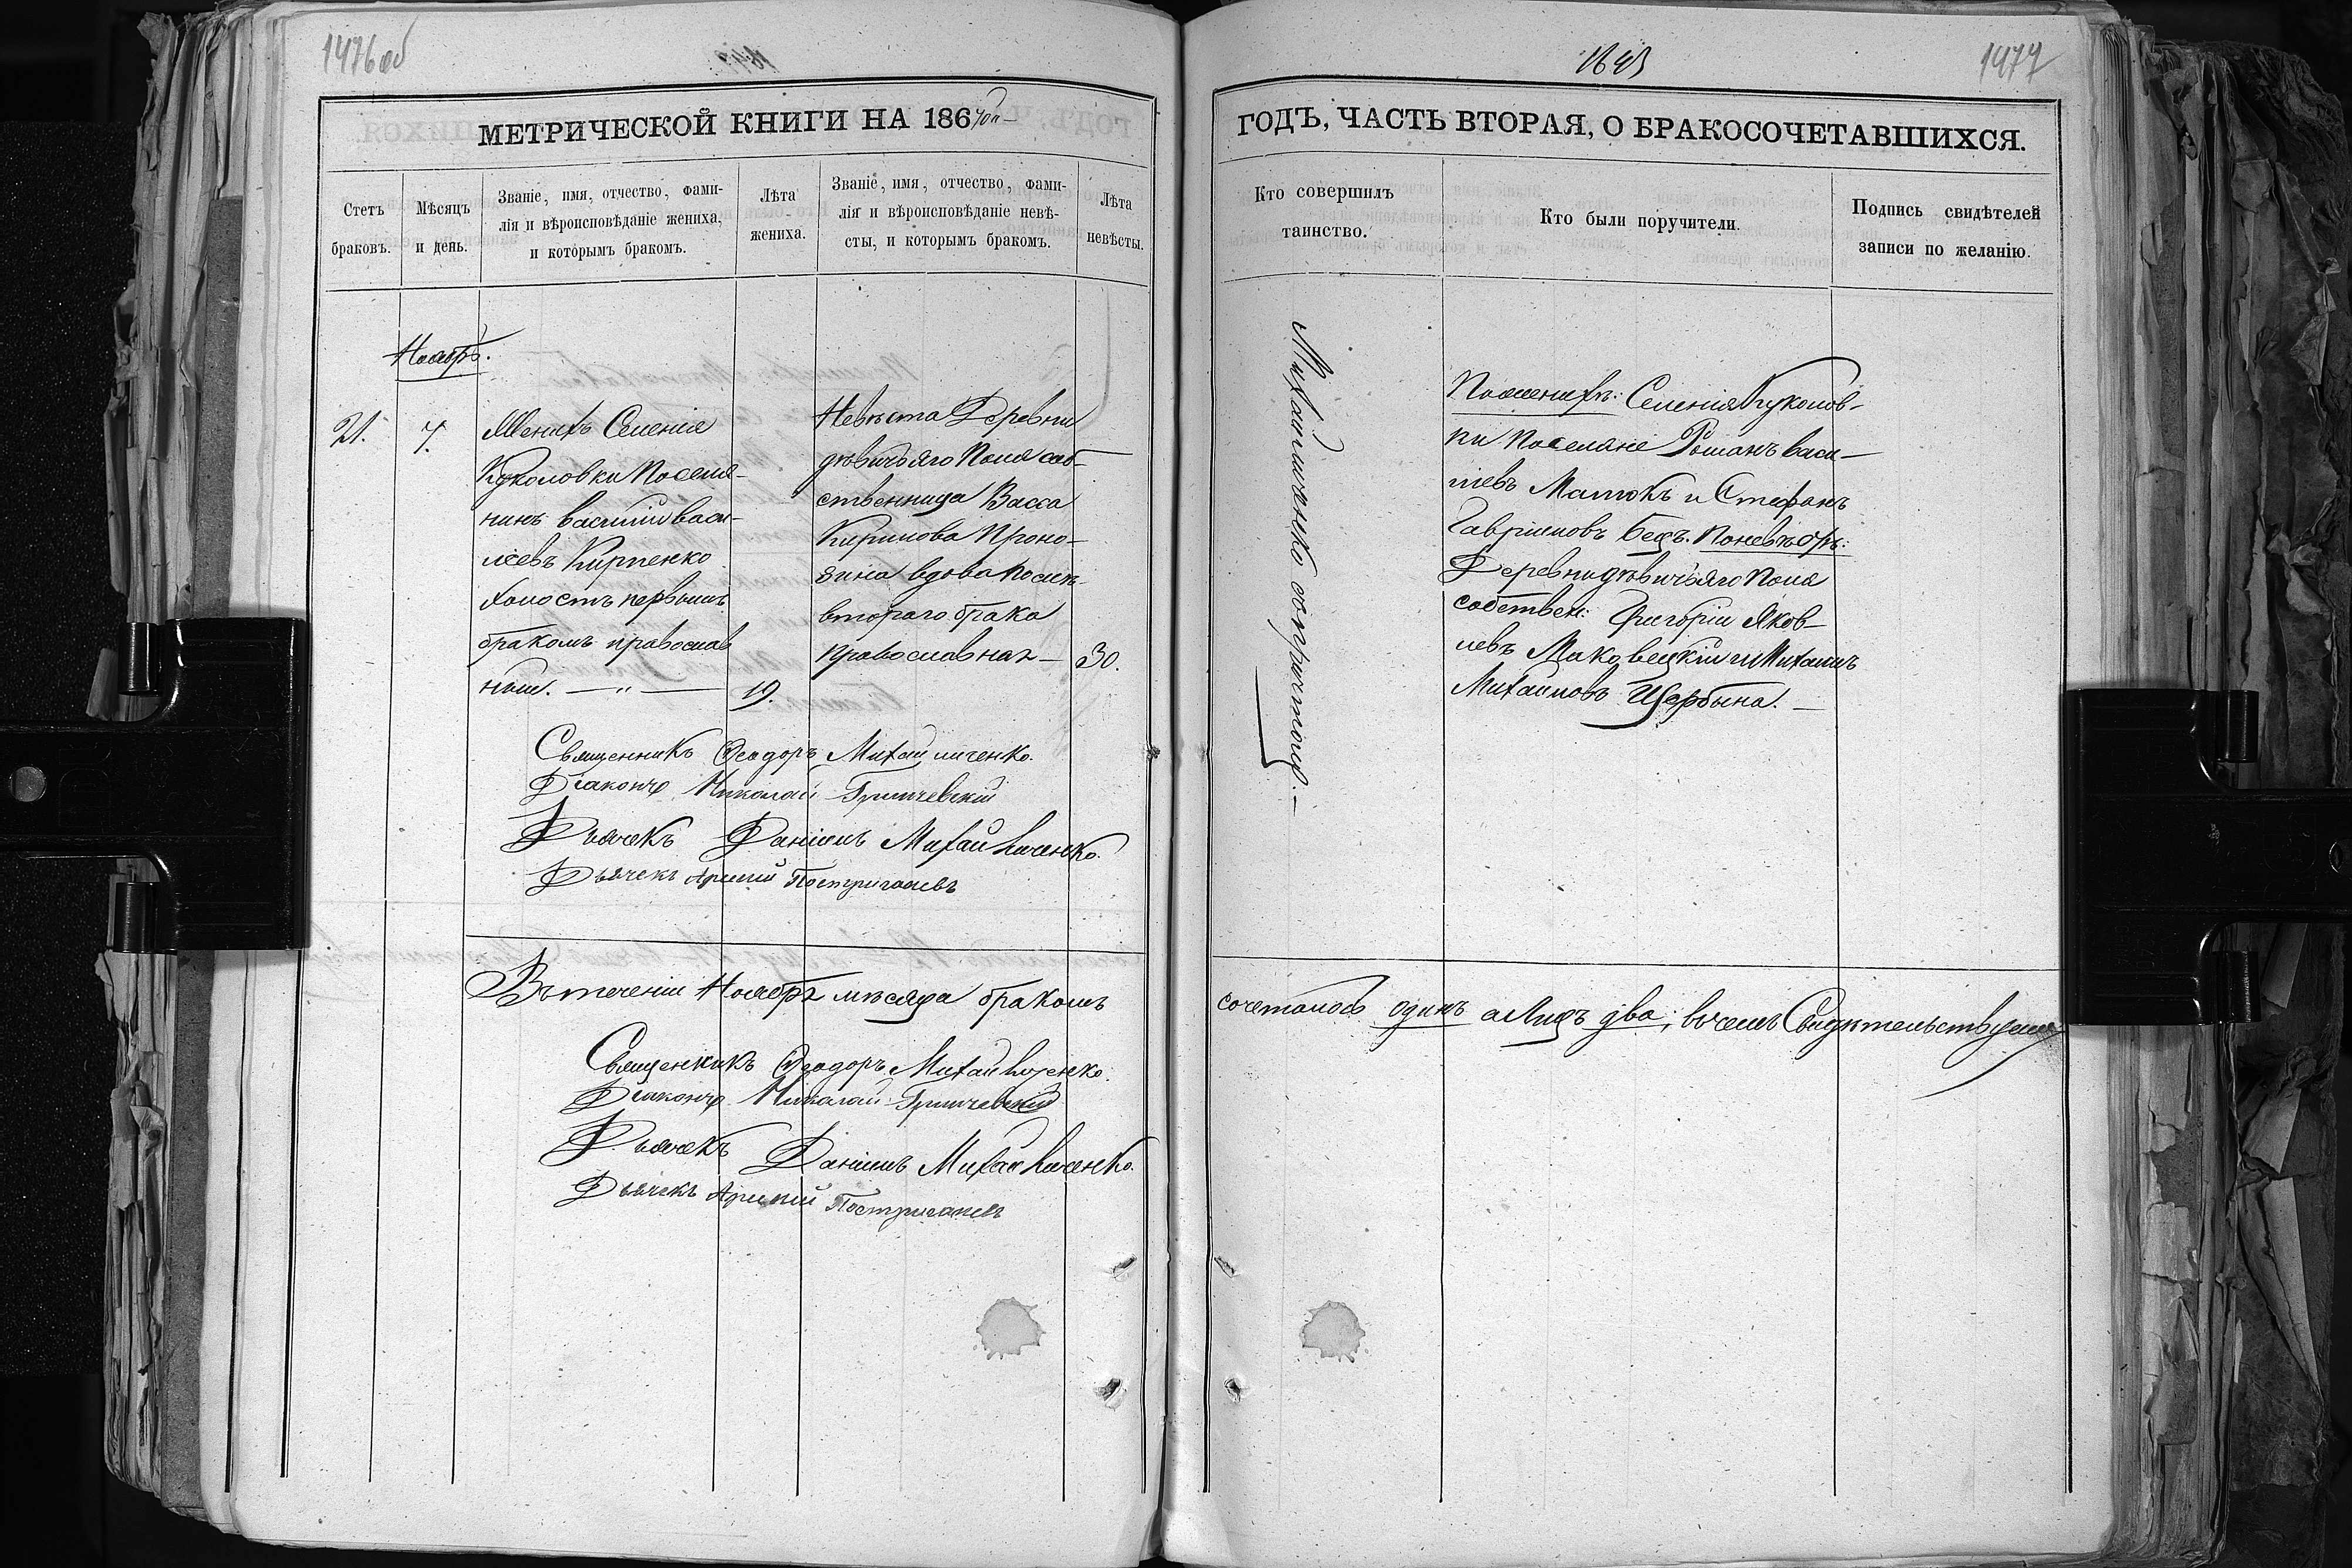 1476об
1477
МЕТРИЧЕСКОЙ КНИГИ НА 1864й
ГОДЪ, ЧАСТЬ ВТОРАЯ, О БРАКОСОЧЕТАВШИХСЯ.
Счетъ браковъ.
Мѣсяцъ и день.
Званіе, имя, отчество, фами-
лія и вѣроисповѣданіе жениха,
и которымъ бракомъ.
Лѣта
жениха.
Званіе, имя, отчество, фами-
лія и вѣроисповѣданіе невѣ-
сты, и которымъ бракомъ.
Лѣта
невѣсты.
Кто совершилъ
таинство.
Кто были поручители.
Подпись свидѣтелей
записи по желанію.
Ноябрь.
21.
7.
Женихъ Селенія
Куколовки Поселя-
нинъ василій васи-
ліевъ Кирпенко
холостъ первымъ
бракомъ православ
ный. — " —
19.
Невѣста Деревни
дѣвичьяго Поля соб-
ственница Васса
Кирилова
вдова послѣ
втораго брака
Православная —
30.
Михайличенко
По женихѣ: Селенія Куколов-
ки Поселяне Романъ васи-
лiевъ Матюкъ и Стефанъ
Гавриловъ Бецъ. По невѣстѣ:
Деревни дѣвичьяго Поля
собствен: Григорій Яков-
левъ Маковецкій и Михаилъ
Михайловъ Щербына. —
Священникъ Феодоръ Михайличенко.
Діаконъ Николай Гримчевскій
Дьячекъ Даніилъ Михайличенко.
Дьячекъ
Въ теченіи Ноября мѣсяца бракомъ
сочеталось одинъ а лицъ два; въ чемъ Свидѣтельствуемъ
Священникъ Феодоръ Михайличенко.
Діаконъ Николай Гримчевскій
Дьячекъ Даніилъ Михайличенко.
Дьячекъ